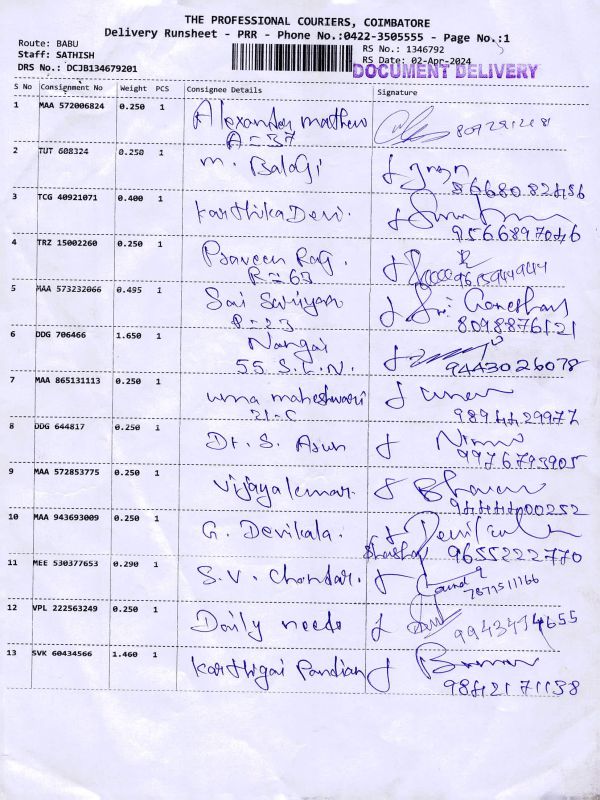 THE PROFESSIONAL COURIERS, COIMBATORE
Delivery Runsheet - PRR - Phone No.:0422-3505555 - Page No.:1
Route: BABU
Staff: SATHISH
DRS No.: DCJB134679201
RS No.: 1346792
RS Date: 02-Apr-2024
DOCUMENT DELIVERY
S No Consignment No Weight PCS Consignee Details Signature
1 MAA 572006824 0.250 1 Alexander mathew
A = 37
2 TUT 608324 0.250 1 M. BalaGi
8668082456
3 TCG 40921071 0.400 1 Karthika Devi.
9566897046
4 TRZ 15002260 0.250 1 Praveen Raj.
R = 63
5 MAA 573232066 0.495 1 Sai Sariyan Sri Ganeshan
P = 23 8098876121
6 DDG 706466 1.650 1 Nangai
55 S.L.N. 9443026078
7 MAA 865131113 0.250 1 uma maheshwari
21-C 9894429977
8 DDG 644817 0.250 1 Dr. S. Arun
9976793905
9 MAA 572853775 0.250 1 Vijayakumar
9444400252
10 MAA 943693009 0.250 1 G. Devikala.
9655222770
11 MEE 530377653 0.290 1 S.V. Chandar.
7871511166
12 VPL 222563249 0.250 1 Daily needs
13 SVK 60434566 1.460 1 Karthigai Pandian
9842171138